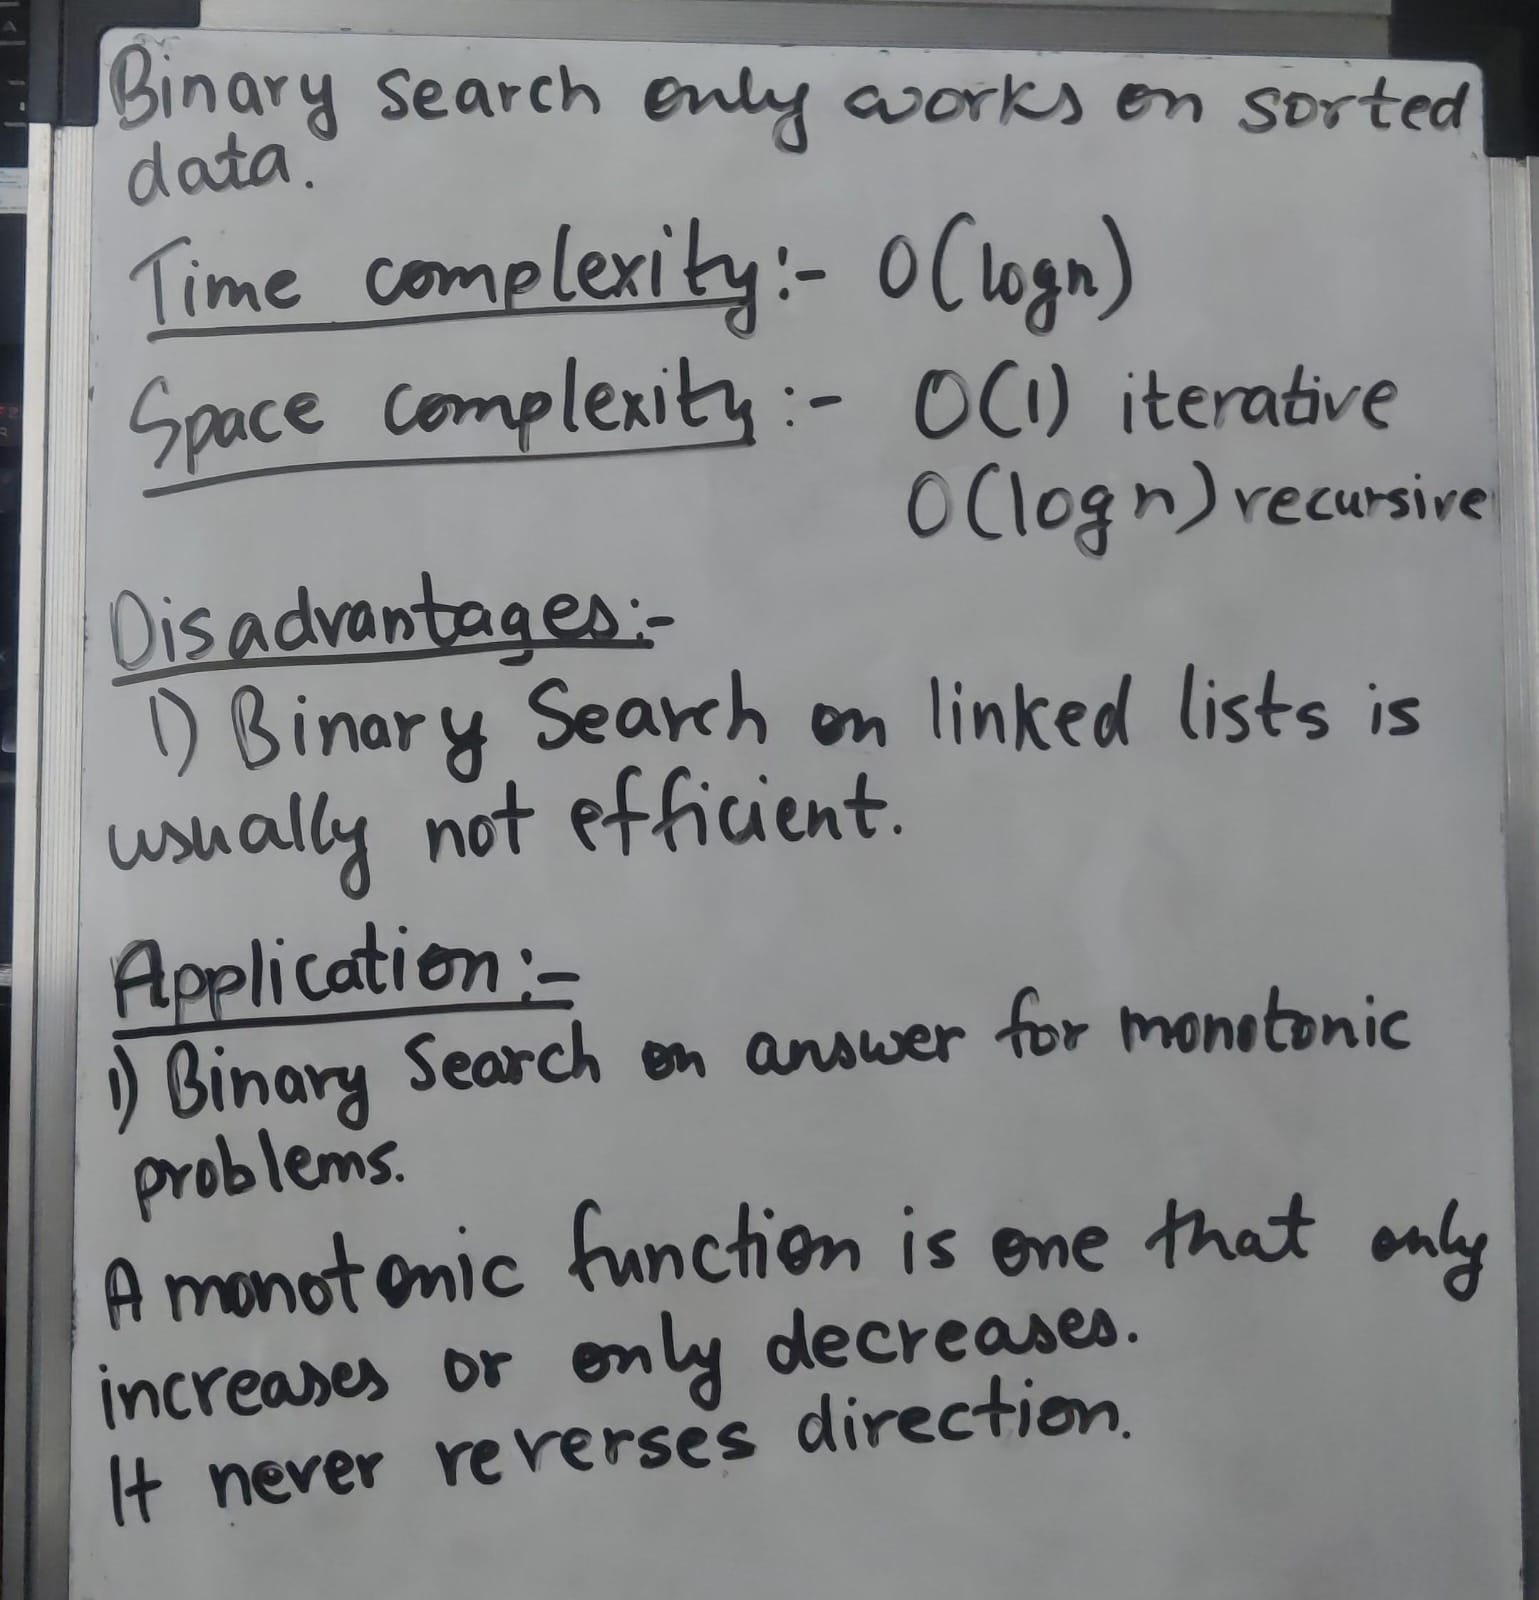 Binary search only works on sorted
data.
Time complexity:- O(logn)
Space complexity:- O(1) iterative
O(logn) recursive
Disadvantages:-
1) Binary Search on linked lists is
usually not efficient.
Application:-
1) Binary Search on answer for monotonic
problems.
A monotonic function is one that only
increases or only decreases.
It never reverses direction.